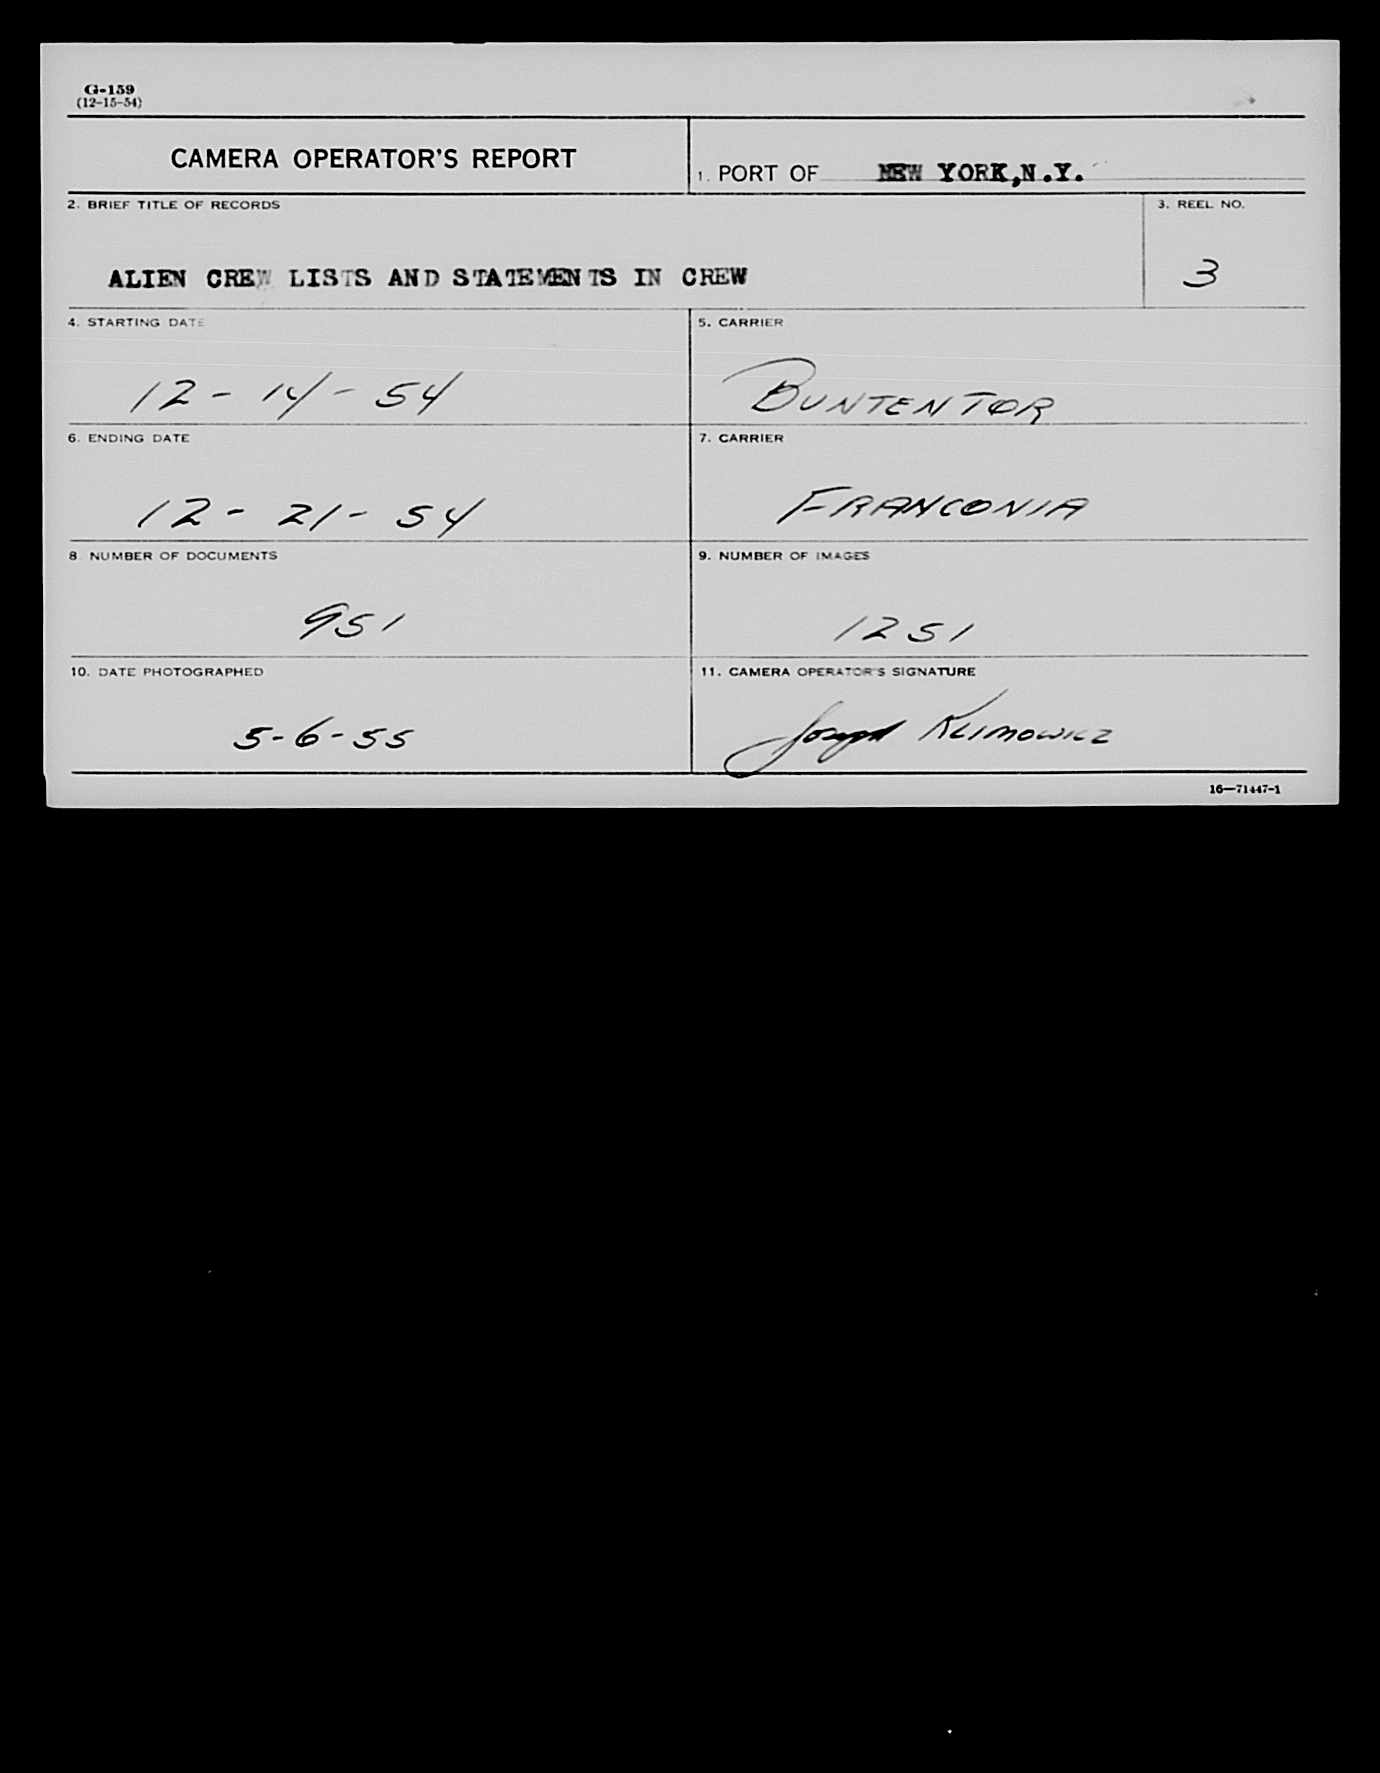 G-159
(12-15-54)
CAMERA OPERATOR'S REPORT
1. PORT OF NEW YORK,N.Y.
2. BRIEF TITLE OF RECORDS
3. REEL NO.
ALIEN CREW LISTS AND STATEMENTS IN CREW
3
4. STARTING DATE
5. CARRIER
12-14-54
BUNTENTOR
6. ENDING DATE
7. CARRIER
12-21-54
FRANCONIA
8 NUMBER OF DOCUMENTS
9. NUMBER OF IMAGES
951
1251
10. DATE PHOTOGRAPHED
11. CAMERA OPERATOR'S SIGNATURE
5-6-55
Joseph KLIMOWICZ
16—71447-1